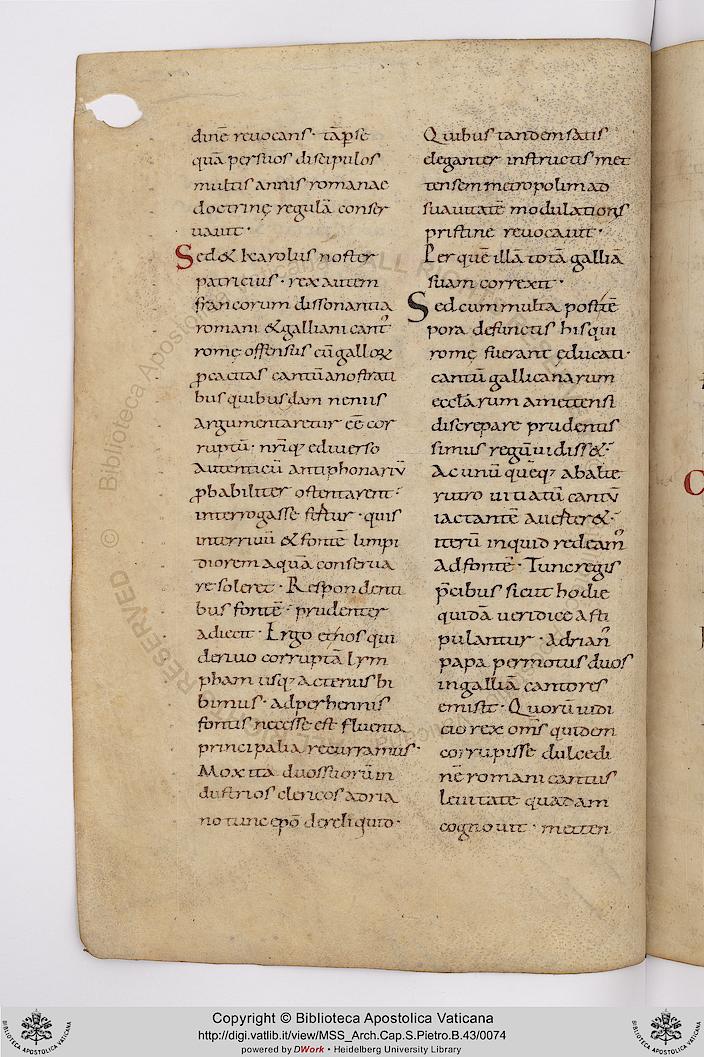 dinē revocans· tāpse
quā persuos discipulos
multis annis romanae
doctrinę regulā conser
vavit·
Sed & karolus noster
patricius· rex autem
francorum dissonantia
romani & galliani cant᷒
romę offensus cū galloꝝ
ꝓcacitas cantū a nostrati
bus quibusdam neniis
argumentaretur eē cor
ruptū· nr̄iq; ediverso
autenticū antiphonariū
ꝓbabiliter ostentarent·
interrogasse fertur· quis
inter rivū & fontē limpi
diorem aquā conserva
re soleret· Respondenti
bus fontē· prudenter
adiecit· Ergo et nos qui
de rivo corruptā lym
pham usq; actenus bi
bimus· ad perhennis
fontis necesse est fluenta
principalia recurramus·
Mox ita duos suorū in
dustrios clericos adria
no tunc epō dereliquid·
Quibus tandem satis
eleganter instructis met
tensem metropolim ad
suavitatē modulationis
pristinę revocavit·
Per quē illā totā galliā
suam correxit·
Sed cum multa post tē
pora defunctis his qui
romę fuerant educati·
cantū gallicanarum
eccłarum a mettensi
discrepare prudentis
simus regū vidiss&·
Ac unū quēq; ab alte
rutro vitiatū cantū
iactantē adverter&·
iterū inquid redeam᷒
ad fontē· Tunc regis
p̄cibus sicut hodie
quidā veridice asti
pulantur· adrian᷒
papa permotus duos
in galliā cantores
emisit· Quorū iudi
cio rex om̄s quidem
corrupisse dulcedi
nē romani cantus
levitate quadam
cognovit· metten
Copyright © Biblioteca Apostolica Vaticana
http://digi.vatlib.it/view/MSS_Arch.Cap.S.Pietro.B.43/0074
powered by DWork • Heidelberg University Library